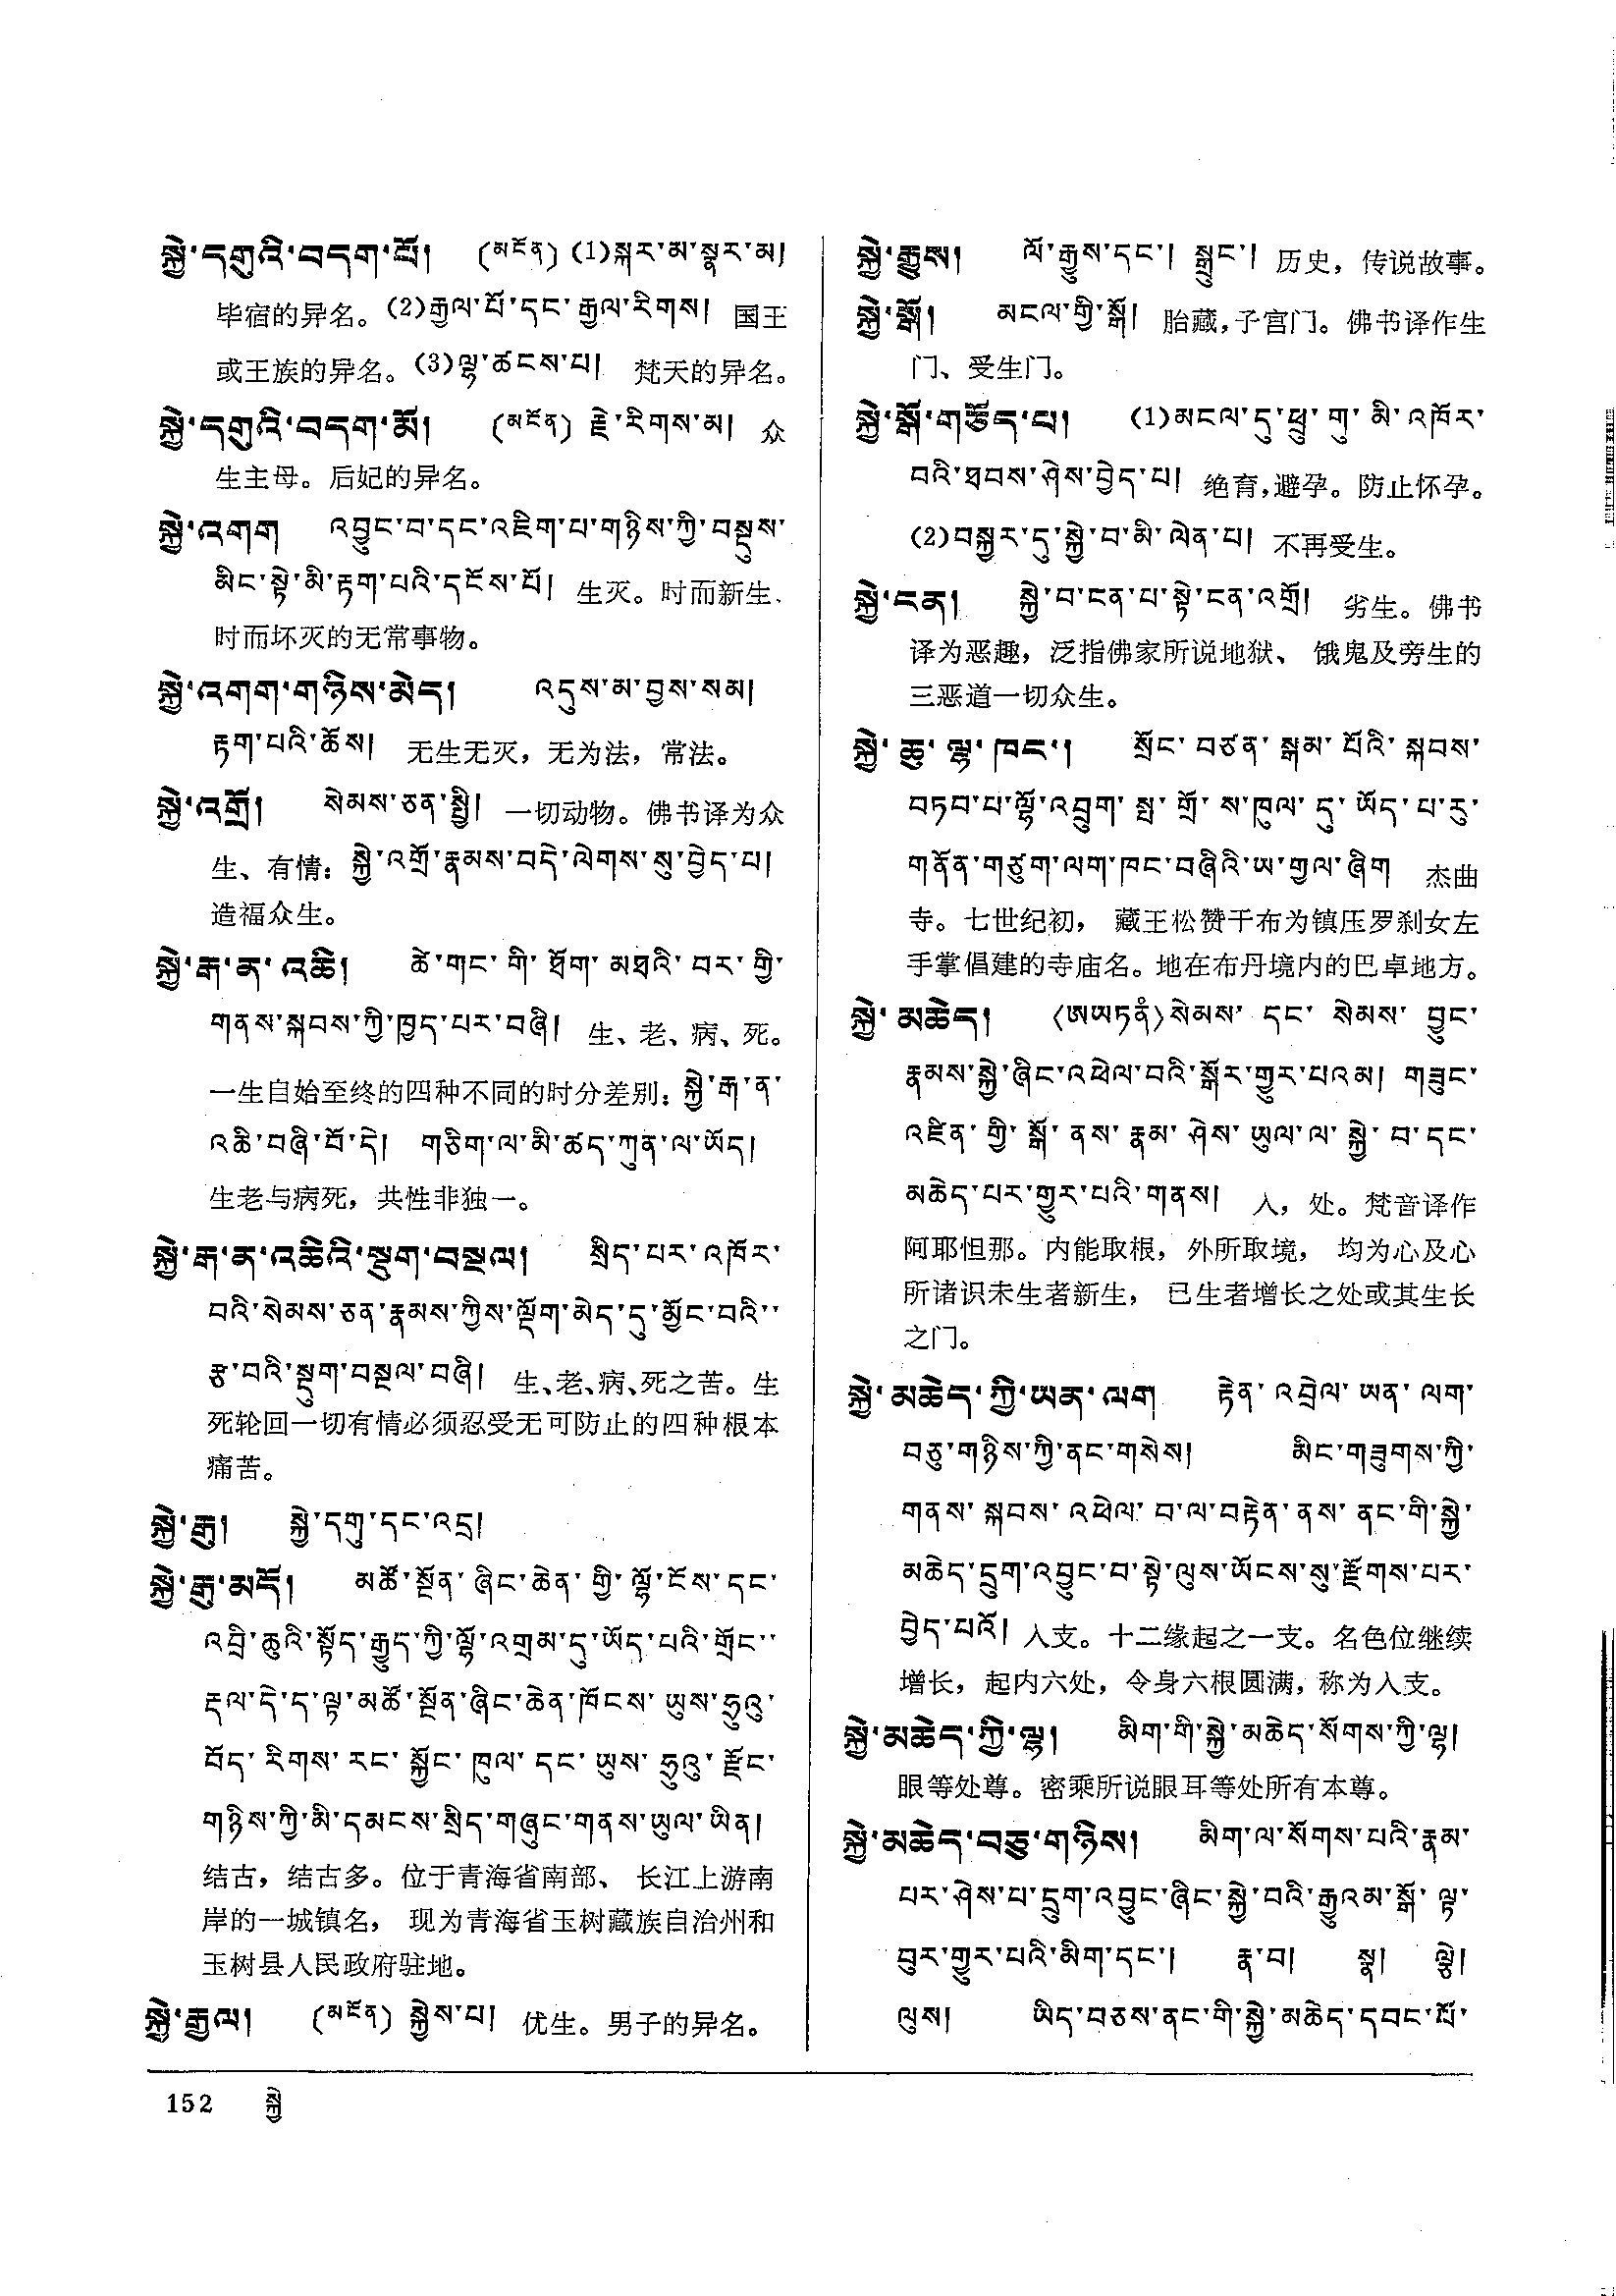 སྐྱེ་དགུའི་བདག་པོ། (མངོན) (1)སྐར་མ་སྣར་མ།
毕宿的异名。(2)རྒྱལ་པོ་དང་རྒྱལ་རིགས། 国王
或王族的异名。(3)ལྷ་ཚངས་པ། 梵天的异名。
སྐྱེ་དགུའི་བདག་མོ། (མངོན) རྗེ་རིགས་མ། 众
生主母。后妃的异名。
སྐྱེ་འགག འབྱུང་བ་དང་འཇིག་པ་གཉིས་ཀྱི་བསྡུས་
མིང་སྟེ་མི་རྟག་པའི་དངོས་པོ། 生灭。时而新生、
时而坏灭的无常事物。
སྐྱེ་འགག་གཉིས་མེད། འདུས་མ་བྱས་སམ།
རྟག་པའི་ཆོས། 无生无灭，无为法，常法。
སྐྱེ་འགྲོ། སེམས་ཅན་སྤྱི། 一切动物。佛书译为众
生、有情：སྐྱེ་འགྲོ་རྣམས་བདེ་ལེགས་སུ་བྱེད་པ།
造福众生。
སྐྱེ་རྒ་ན་འཆི། ཚེ་གང་གི་ཐོག་མཐའི་བར་གྱི་
གནས་སྐབས་ཀྱི་ཁྱད་པར་བཞི། 生、老、病、死。
一生自始至终的四种不同的时分差别：སྐྱེ་རྒ་ན་
འཆི་བཞི་པོ་དེ། གཅིག་ལ་མི་ཚད་ཀུན་ལ་ཡོད།
生老与病死，共性非独一。
སྐྱེ་རྒ་ན་འཆིའི་སྡུག་བསྔལ། སྲིད་པར་འཁོར་
བའི་སེམས་ཅན་རྣམས་ཀྱིས་ལྡོག་མེད་དུ་མྱོང་བའི་་
རྩ་བའི་སྡུག་བསྔལ་བཞི། 生、老、病、死之苦。生
死轮回一切有情必须忍受无可防止的四种根本
痛苦。
སྐྱེ་རྒུ། སྐྱེ་དགུ་དང་འདྲ།
སྐྱེ་རྒུ་མདོ། མཚོ་སྔོན་ཞིང་ཆེན་གྱི་ལྷོ་ངོས་དང་
འབྲི་ཆུའི་སྟོད་རྒྱུད་ཀྱི་ལྷོ་འགྲམ་དུ་ཡོད་པའི་གྲོང་་
རྡལ་དེ་ད་ལྟ་མཚོ་སྔོན་ཞིང་ཆེན་ཁོངས་ཡུས་ཧྲུའུ་
བོད་རིགས་རང་སྐྱོང་ཁུལ་དང་ཡུས་ཧྲུའུ་རྫོང་
གཉིས་ཀྱི་མི་དམངས་སྲིད་གཞུང་གནས་ཡུལ་ཡིན།
结古，结古多。位于青海省南部、长江上游南
岸的一城镇名，现为青海省玉树藏族自治州和
玉树县人民政府驻地。
སྐྱེ་རྒྱལ། (མངོན) སྐྱེས་པ། 优生。男子的异名。
སྐྱེ་རྒྱུས། ལོ་རྒྱུས་དང་། སྒྲུང་། 历史，传说故事。
སྐྱེ་སྒོ། མངལ་གྱི་སྒོ། 胎藏，子宫门。佛书译作生
门、受生门。
སྐྱེ་སྒོ་གཅོད་པ། (1)མངལ་དུ་ཕྲུ་གུ་མི་འཁོར་
བའི་ཐབས་ཤེས་བྱེད་པ། 绝育，避孕。防止怀孕。
(2)བསྐྱར་དུ་སྐྱེ་བ་མི་ལེན་པ། 不再受生。
སྐྱེ་ངན། སྐྱེ་བ་ངན་པ་སྟེ་ངན་འགྲོ། 劣生。佛书
译为恶趣，泛指佛家所说地狱、饿鬼及旁生的
三恶道一切众生。
སྐྱེ་ཆུ་ལྷ་ཁང་། སྲོང་བཙན་སྒམ་པོའི་སྐབས་
བཏབ་པ་ལྷོ་འབྲུག་སྤ་གྲོ་ས་ཁུལ་དུ་ཡོད་པ་རུ་
གནོན་གཙུག་ལག་ཁང་བཞིའི་ཡ་གྱལ་ཞིག 杰曲
寺。七世纪初，藏王松赞干布为镇压罗刹女左
手掌倡建的寺庙名。地在布丹境内的巴卓地方。
སྐྱེ་མཆེད། (ཨཡཏནཾ)སེམས་དང་སེམས་བྱུང་
རྣམས་སྐྱེ་ཞིང་འཕེལ་བའི་སྒོར་གྱུར་པའམ། གཟུང་
འཛིན་གྱི་སྒོ་ནས་རྣམ་ཤེས་ཡུལ་ལ་སྐྱེ་བ་དང་
མཆེད་པར་གྱུར་པའི་གནས། 入，处。梵音译作
阿耶怛那。内能取根，外所取境，均为心及心
所诸识未生者新生，已生者增长之处或其生长
之门。
སྐྱེ་མཆེད་ཀྱི་ཡན་ལག རྟེན་འབྲེལ་ཡན་ལག་
བཅུ་གཉིས་ཀྱི་ནང་གསེས། མིང་གཟུགས་ཀྱི་
གནས་སྐབས་འཕེལ་བ་ལ་བརྟེན་ནས་ནང་གི་སྐྱེ་
མཆེད་དྲུག་འབྱུང་བ་སྟེ་ལུས་ཡོངས་སུ་རྫོགས་པར་
བྱེད་པའོ། 入支。十二缘起之一支。名色位继续
增长，起内六处，令身六根圆满，称为入支。
སྐྱེ་མཆེད་ཀྱི་ལྷ། མིག་གི་སྐྱེ་མཆེད་སོགས་ཀྱི་ལྷ།
眼等处尊。密乘所说眼耳等处所有本尊。
སྐྱེ་མཆེད་བཅུ་གཉིས། མིག་ལ་སོགས་པའི་རྣམ་
པར་ཤེས་པ་དྲུག་འབྱུང་ཞིང་སྐྱེ་བའི་རྒྱུའམ་སྒོ་ལྟ་
བུར་གྱུར་པའི་མིག་དང་། རྣ་བ། སྣ། ལྕེ།
ལུས། ཡིད་བཅས་ནང་གི་སྐྱེ་མཆེད་དབང་པོ་
152 སྐྱེ